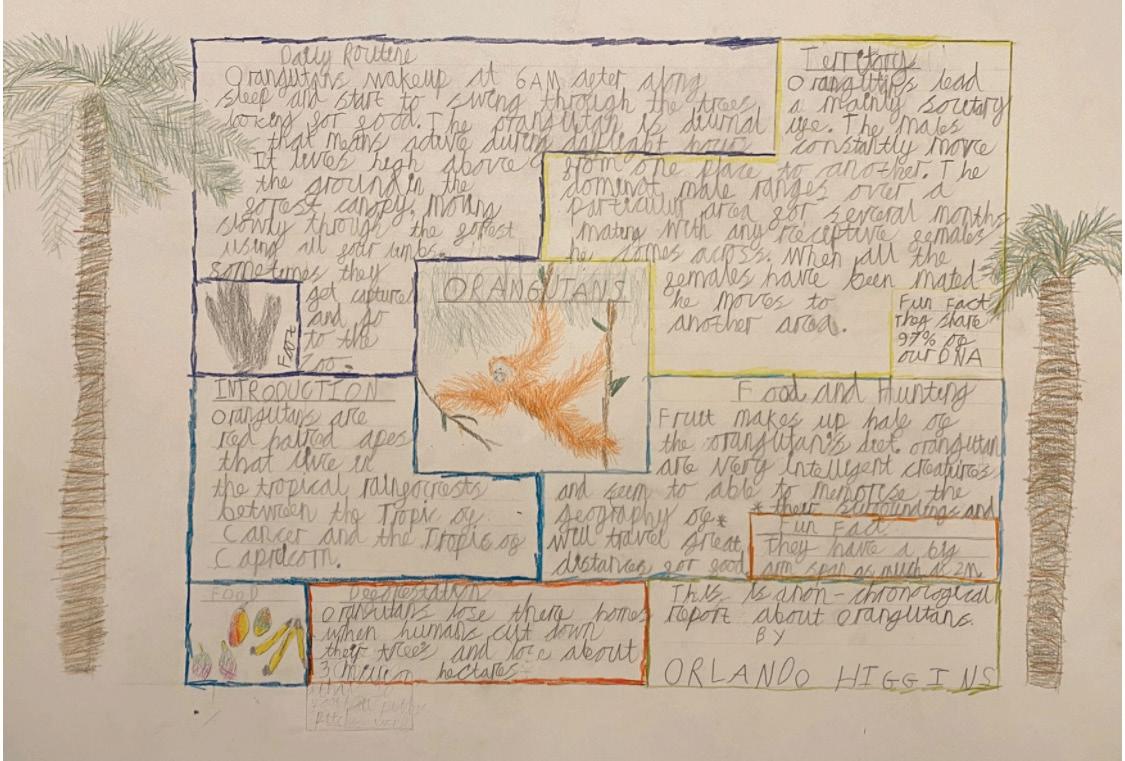 Daily Routine
Orangutans wakeup at 6AM aeter along
sleep and start to swing through the trees
looking for good. The orangutan is diurnal
that means active during daylight hours
It lives high above
the ground in the
gorest canopy, moving
slowly through the gorest
using all gour limbs.
sometimes they
get captured
and go
to the
zoo.
Foot
Territory
Orangutans lead
a mainly
lige. The males
constantly move
from one place to another. The
dominat male ranges over a
particular area gor several months
mating with any receptive gemales
he comes across. When all the
gemales have been mated
he moves to
another area.
Fun Fact
They share
97% oe
our DNA
ORANGUTANS
INTRODUCTION
Orangutans are
red haired apes
that live in
the tropical
between the Tropic og
Cancer and the Tropic og
Capricorn.
Food and Hunting
Fruit makes up hale oe
the orangutan's diet. orangutan
are very intelligent creatures
and seem to able to memorise the
geography oe* *their surroundings and
will travel great
distances gor good
Fun Fact
They have a big
arm span as much as 2m
FOOD
Degorestation
Orangutans lose there homes
when humans cut down
their trees and lose about
3 million hectares
This is anon-chronological
report about orangutans.
BY
ORLANDO HIGGINS